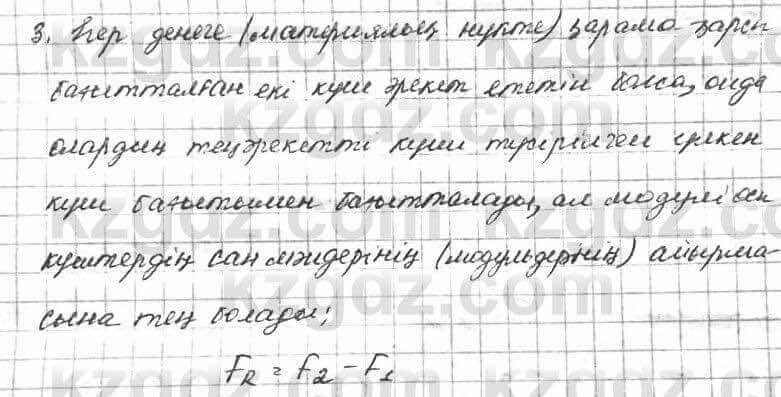 3. Егер денеге (материялық нүкте) қарама-қарсы
бағытталған екі күш әрекет ететін болса, онда
олардың теңәрекетті күші түсірілген үлкен
күш бағытымен бағытталады, ал модулі осы
күштердің сан мәндерінің (модульдерінің) айырма-
сына тең болады;
FR = F2 - F1